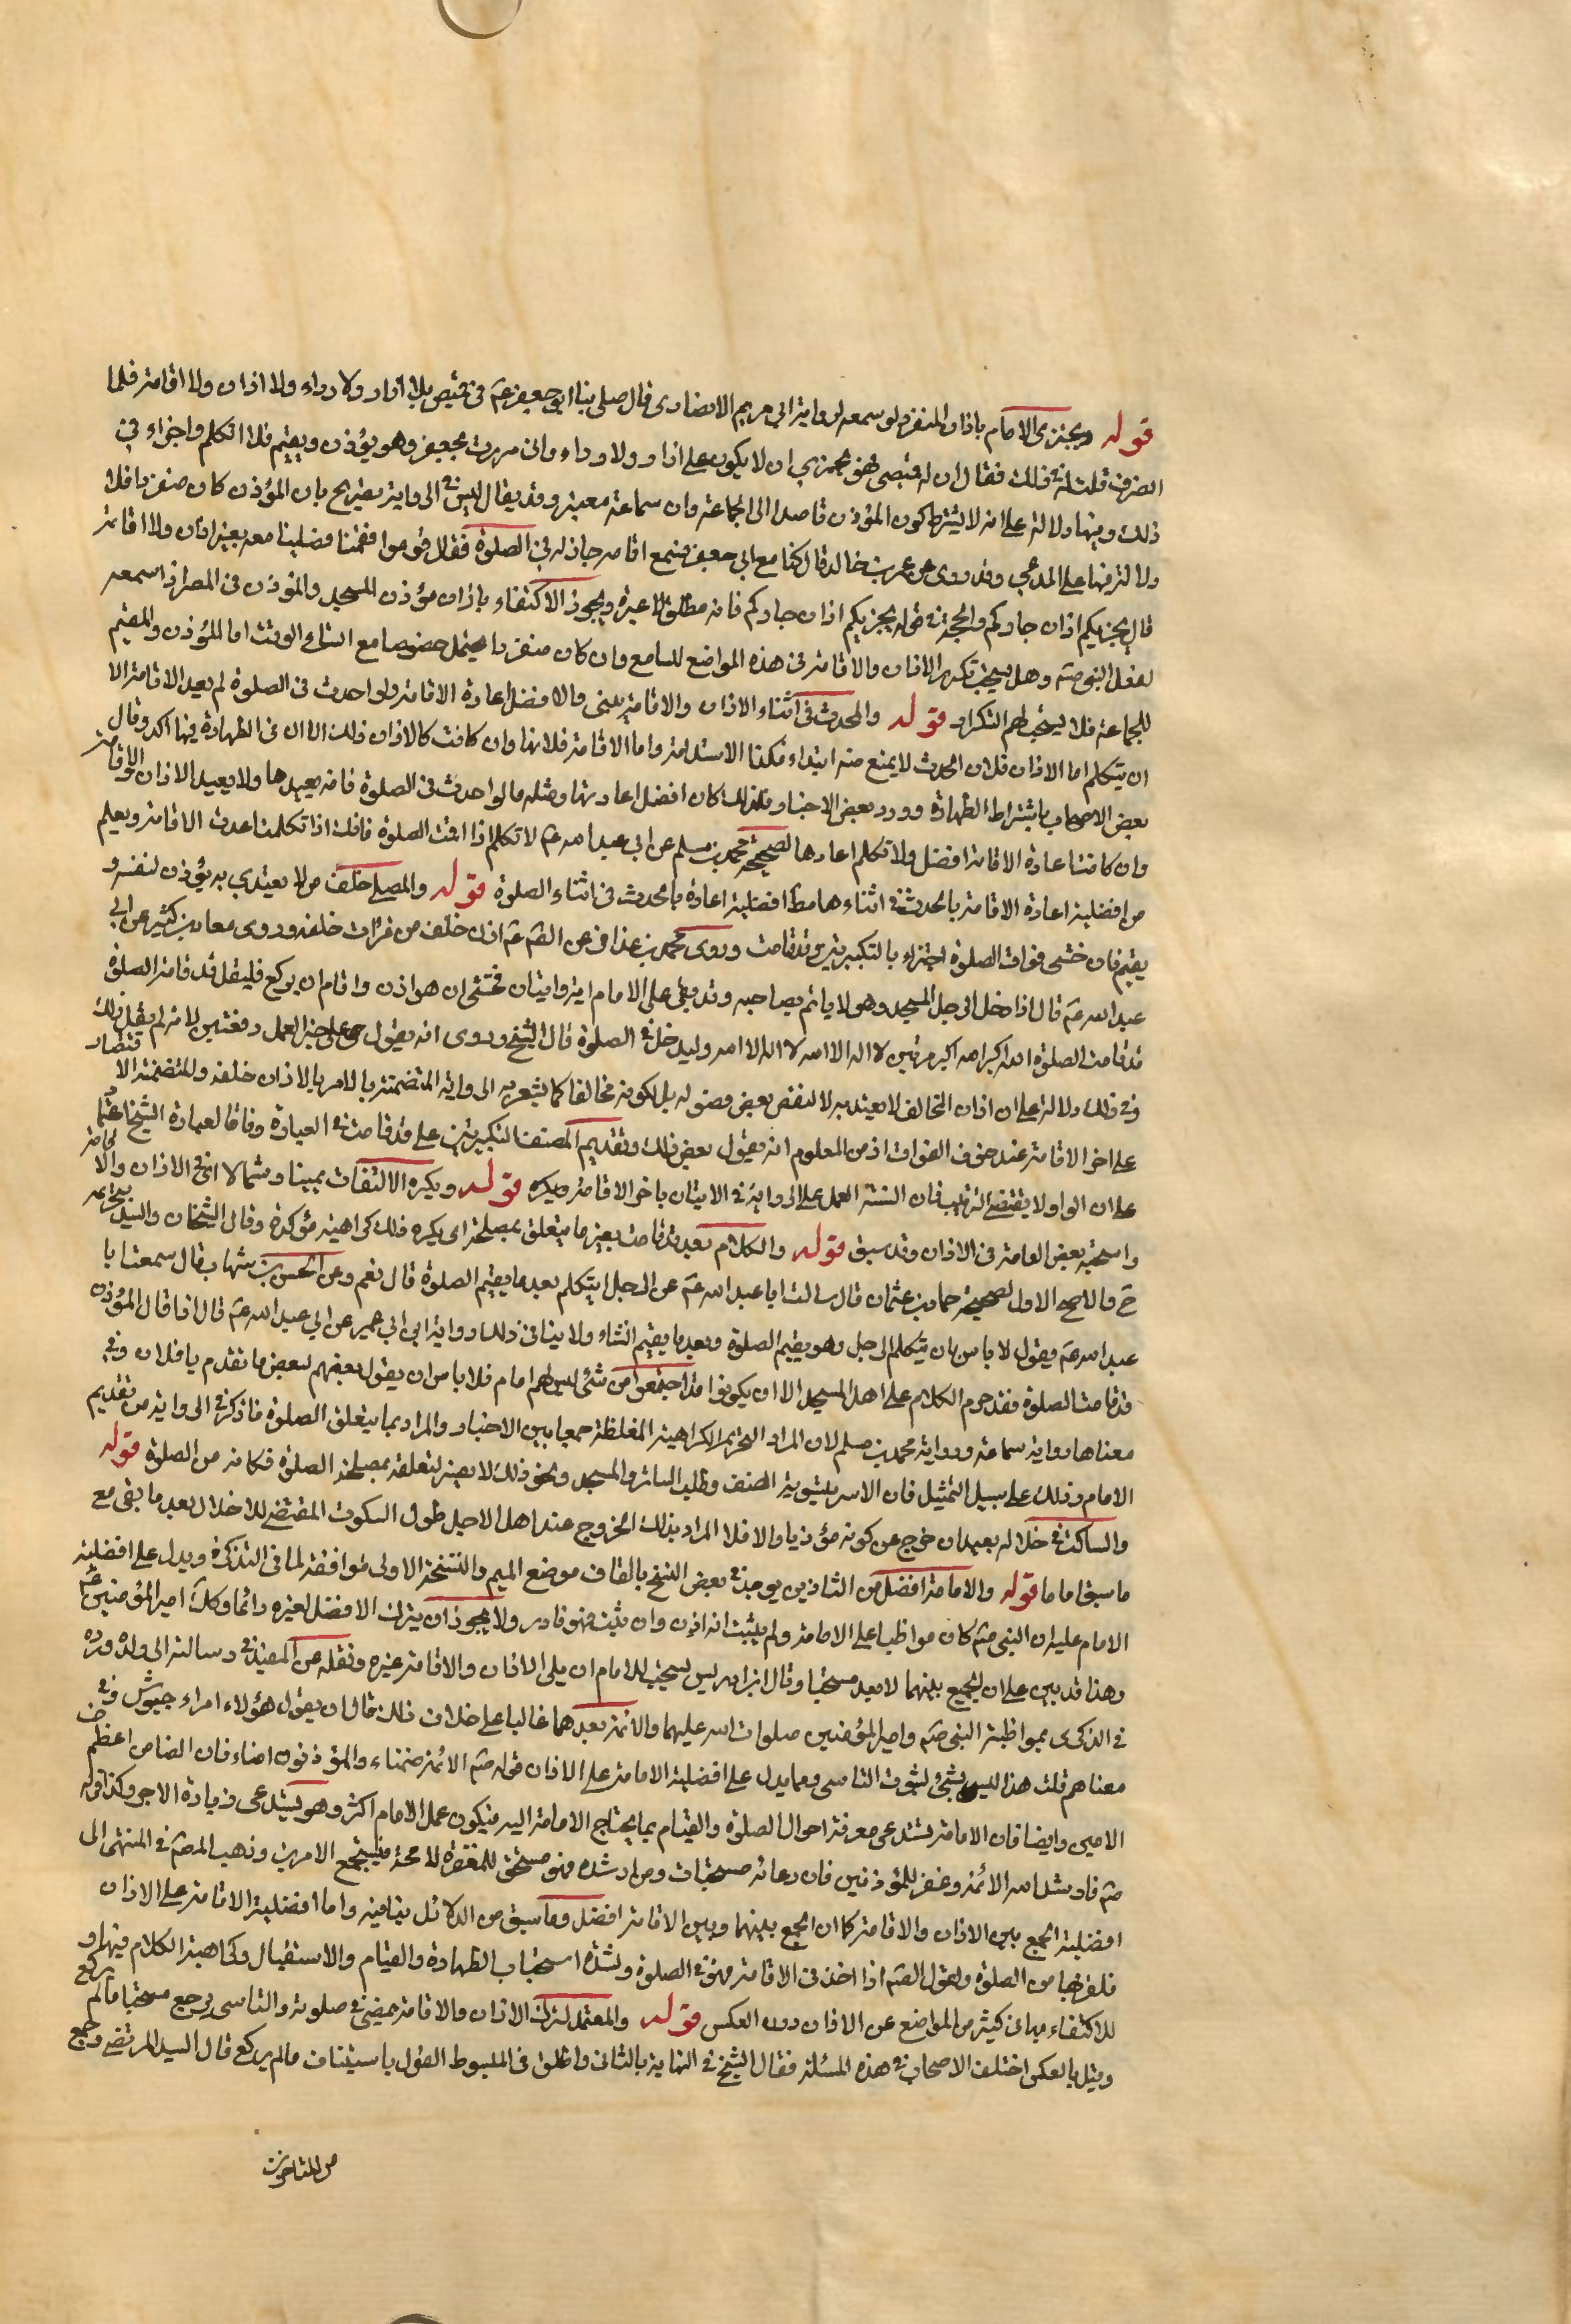 قوله ويجتزي الامام باذان المنفرد لو سمعه لرواية ابي مريم الانصاري قال صلى بنا ابو جعفر عم في قميص بلا ازار ولا رداء ولا اذان ولا اقامة فلما
انصرف قلت له في ذلك فقال ان قميصي كثيف فهو يجزي ان لا يكون على ازار ولا رداء واني مررت بجعفر وهو يؤذن ويقيم فلم اتكلم واجزاء في
ذلك وفيها دلالة على انه لا يشترط كون المؤذن قاصدا الى الجماعة وان سماعه معتبر وقد يقال ليس في الرواية تصريح بان المؤذن كان منفردا فلا
دلالة فيها على المدعى وقد روى عن عمر بن خالد قال كنا مع ابي جعفر فسمع اقامة جار له في الصلوة فقال قوموا فقمنا فصلينا معه بغير اذان ولا اقامة
قال يجزيكم اذان جاركم والحجة في قوله يجزيكم اذان جاركم فانه مطلق ويجوز الاكتفاء باذان مؤذن المسجد والمؤذن في المصر اذا سمعه
لفعل النبي صم وهل يستحب تكرير الاذان والاقامة في هذه المواضع للسامع وان كان منفردا يحتمل خصوصا مع اتساع الوقت اما المؤذن والمقيم
للجماعة فلا يستحب لهم التكرار قوله والمحدث في اثناء الاذان والاقامة يبنى والافضل اعادة الاقامة ولو احدث في الصلوة لم يعد الاقامة الا
ان يتكلم اما الاذان فلان الحدث لا يمنع منه ابتداء فكذا الاستدامة واما الاقامة فلانها وان كانت كالاذان في ذلك الا ان الطهارة فيها اكد وقال
بعض الاصحاب باشتراط الطهارة وورد بعض الاخبار فلذلك كان افضل اعادتها ومثله ما لو احدث في الصلوة فانه يعيدها ولا يعيد الاذان والاقامة
وان كانت اعادة الاقامة افضل ولا تكلم اعادها لصحيحة محمد بن مسلم عن ابي عبد الله عم لا تكلم اذا اقمت الصلوة فانك اذا تكلمت اعدت الاقامة ويعلم
من افضلية اعادة الاقامة بالحدث في اثناءها مط افضلية اعادة بالحدث في اثناء الصلوة قوله والمصلي خلف من لا يقتدى به يؤذن لنفسه و
يقيم فان خشي فوات الصلوة اجتزاء بالتكبيرتين وقد قامت وروى محمد بن عذافر عن الصم عم اذن خلف من قرات خلفه وروى معاذ بن كثير عن ابي
عبد الله عم قال اذا دخل الرجل المسجد وهو لا ياتم بصاحبه وقد بقي على الامام اية وايتان فخشي ان هو اذن واقام ان يركع فليقل قد قامت الصلوة
قد قامت الصلوة الله اكبر الله اكبر مرتين لا اله الا الله لا اله الا الله وليدخل في الصلوة قال الشيخ وروى انه يقول حي على خير العمل دفعتين لانه لم يقل ذلك
وفي ذلك دلالة على ان اذان المخالف لا يعتد به لا لنقص بعض فصوله بل لكونه مخالفا كما يشعر به الرواية المتضمنة بالامر بالاذان خلفه والمتضمنة الاقتصار
على اخر الاقامة عند خوف الفوات اذ من المعلوم انه يقول بعض ذلك وتقديم المصنف التكبيرتين على قد قامت في العبارة وفاقا لعبارة الشيخ اعتمادا
على ان الواو لا يقتضي الترتيب فان السنة العمل على الرواية في الاتيان باخر الاقامة ويكره قوله ويكره الالتفات يمينا وشمالا اي في الاذان والاقامة
واستحبه بعض العامة في الاذان وقد سبق قوله والكلام بعد قد قامت بغير ما يتعلق بمصلحة اي يكره ذلك كراهية مؤكدة وقال الشيخان والسيد بتحريمه
ح والاصح الاول لصحيحة حماد بن عثمان قال سالت ابا عبد الله عم عن الرجل ايتكلم بعد ما يقيم الصلوة قال نعم وعن الحسن بن شهاب قال سمعت ابا
عبد الله عم ويقول لا باس بان يتكلم الرجل وهو يقيم الصلوة وبعد ما يقيم انشاء ولا ينافى ذلك رواية ابن ابي عمير عن ابي عبد الله عم قال اذا قال المؤذن
قد قامت الصلوة فقد حرم الكلام على اهل المسجد الا ان يكونوا قد اجتمعوا من شتى ليس لهم امام فلا باس ان يقول بعضهم لبعض ما تقدم يا فلان وفي
معناها رواية سماعة ورواية محمد بن مسلم لان المراد التحريم الكراهية المغلظة جمعا بين الاخبار والمراد بما يتعلق الصلوة ما ذكر في الرواية من تقديم
الامام وذلك على سبيل التمثيل فان الامر بتسوية الصف وطلب الساتر والمسجد ونحو ذلك لا يضر لتعلقه بمصلحة الصلوة فكانه من الصلوة قوله
والساكت في خلاله يعيد ان خرج عن كونه مؤذنا والا فلا المراد بذلك الخروج عند اهل الاحيل طول السكوت المقتضي للاخلال بعد ما بقي مع
ما سبق اماما قوله والامامة افضل من التاذين يوجد في بعض النسخ بالقاف موضع الميم والنسخة الاولى موافقة لما في التذكرة ويدل على افضلية
الامام عليه ان النبي صم كان مواظبا على الامامة ولم يثبت انه اذن وان ثبت فهو نادر ولا يجوز ان يترك الافضل لغيره دائما وكك امير المؤمنين عم
وهذا قد يبين على ان الجميع بينهما لا يعد مستحبا وقال ابن ادريس يستحب للامام ان يلي الاذان والاقامة غيره ونقله عن المفيد في رسالته الى ولده ورده
في الذكرى بمواظبة النبي صم وامير المؤمنين صلوات الله عليهما والائمة بعدهما غالبا على خلاف ذلك قال ان يقول هؤلاء امراء جيوش وفي
معناهم قلت هذا ليس بشئ لثبوت التاسي ومما يدل على افضلية الامامة على الاذان قوله صم الائمة ضمناء والمؤذنون امناء فان الضامن اعظم من
الامين وايضا فان الامامة تستدعي معرفة احوال الصلوة والقيام بما يحتاج الامامة اليه فيكون عمل الامام اكثر وهو يستدعي زيادة الاجر وكذا قوله
صم فارشد الله الائمة وغفر للمؤذنين فان دعائه مستجاب ومن ارشده فهو مستحق للمغفرة لا محة فيجتمع الامرين وذهب المصم في المنتهى الى
افضلية الجمع بين الاذان والاقامة كما ان الجمع بينهما وبين الاقامة افضل وما سبق من الدلائل ينافيه واما افضلية الاقامة على الاذان
فلقربها من الصلوة ولقول الصم اذا اخذ في الاقامة فهو في الصلوة ولشدة استحباب الطهارة والقيام والاستقبال وكراهية الكلام فيها و
للاكتفاء بها في كثير من المواضع عن الاذان دون العكس قوله والمعتمد لترك الاذان والاقامة يمضي في صلوته والناسي يرجع مستحبا ما لم يركع
وقيل بالعكس اختلف الاصحاب في هذه المسئلة فقال الشيخ في النهاية بالثاني واطلق في المبسوط القول باستيناف ما لم يركع قال السيد المرتضى وجمع
من المتاخرين